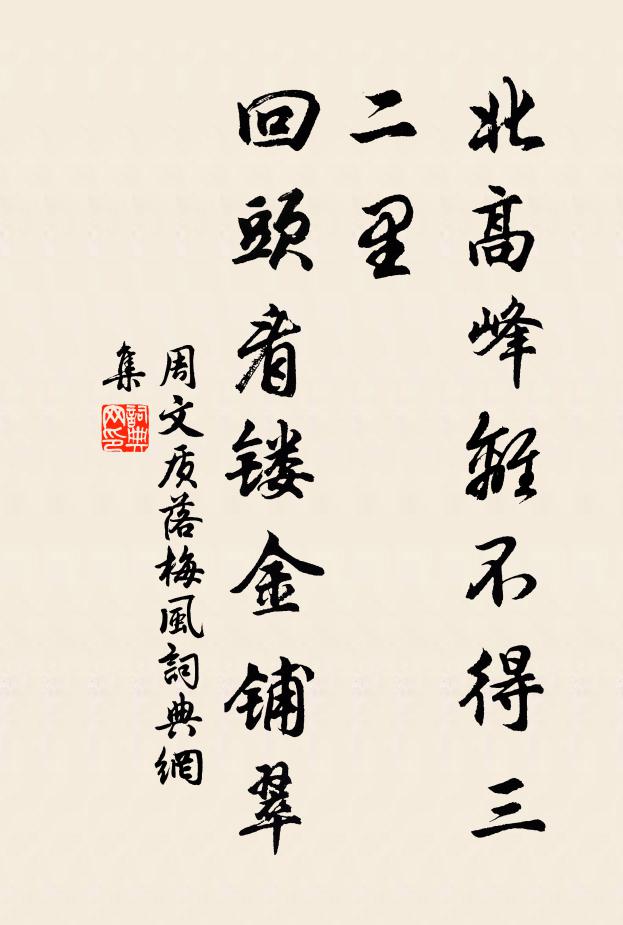 北高峰離不得三
二里
回頭看镂金铺翠
周文质落梅風詞典網
集
詞典网印